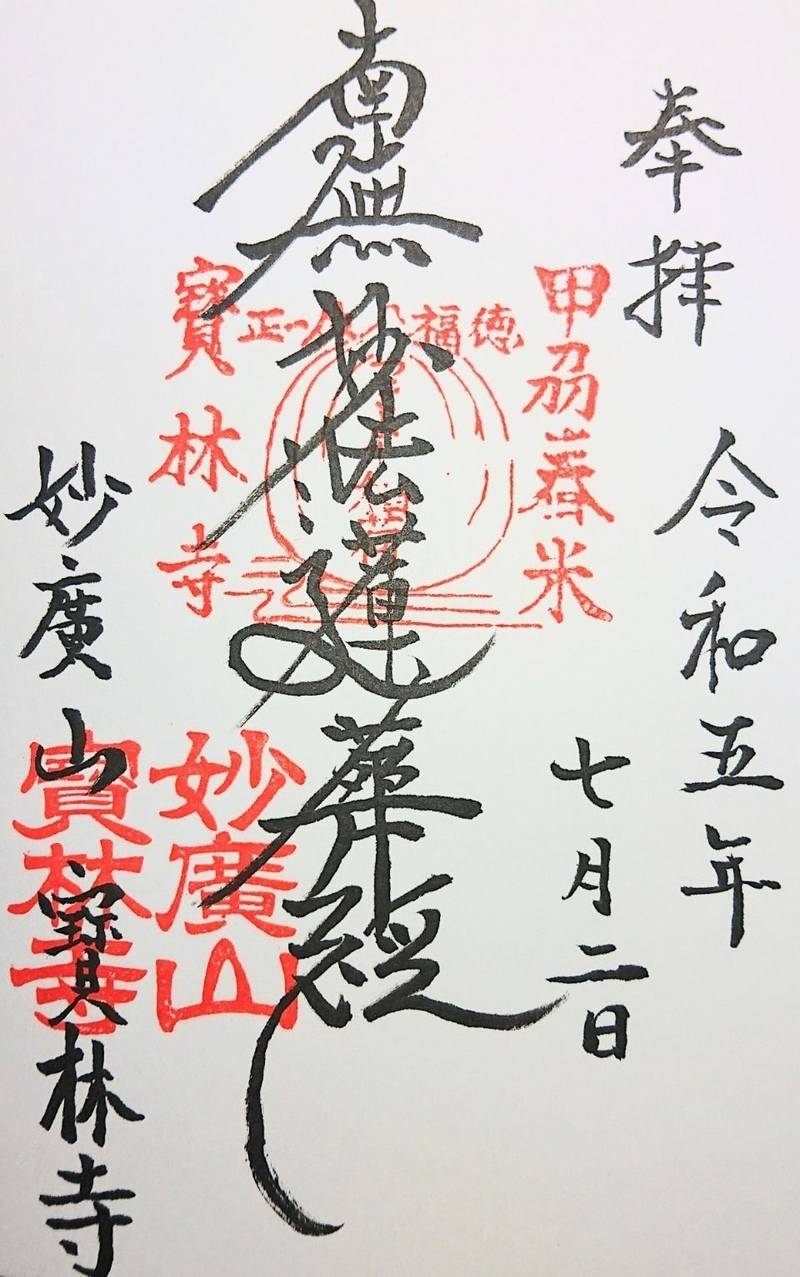 奉拝
令和五年
七月二日
甲刕舂米
徳福
正一
南無妙法蓮華経
寶林寺
妙廣山
寶林寺
妙廣山
寶林寺